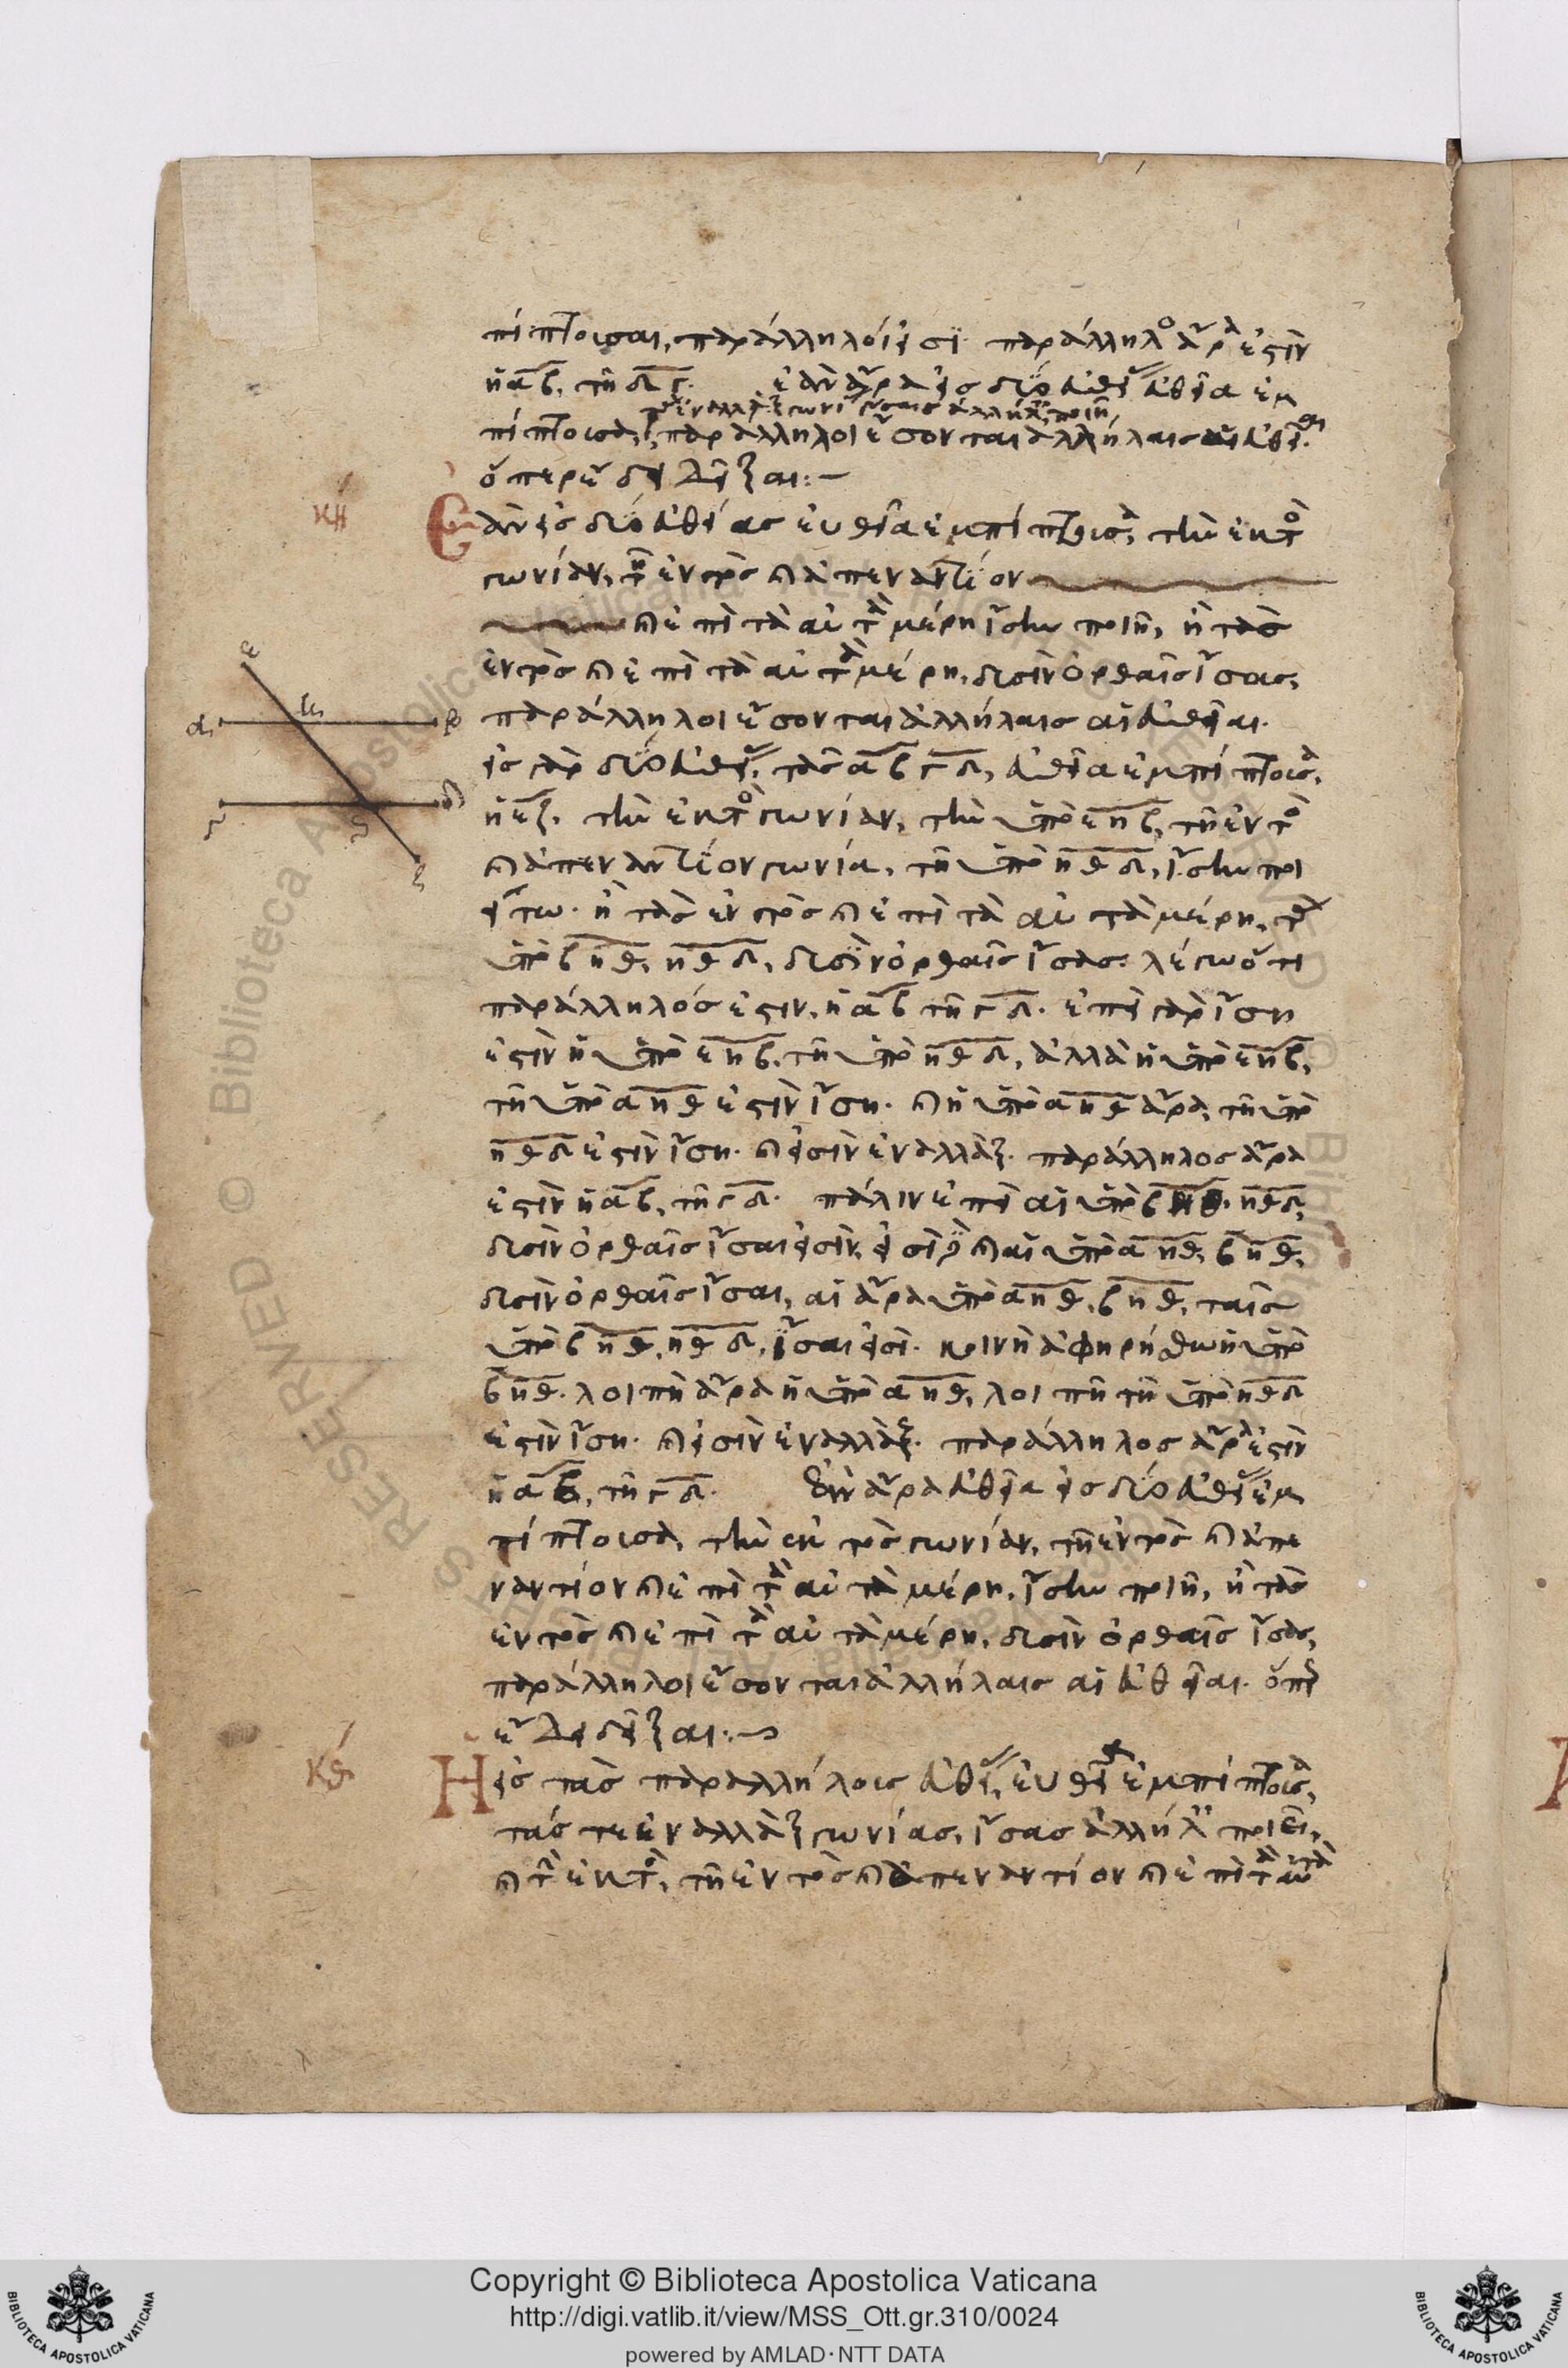 πίπτουσαι, παράλληλοί εἰσι· παράλληλος ἄρα ἐστὶν
ἡ αβ, τῇ δγ. ἐὰν ἄρα εἰς δύο εὐθείας εὐθεῖα ἐμ
τὰς ἐναλλὰξ γωνίας ἴσας ἀλλήλαις ποιῇ,
πίπτουσα, παράλληλοι ἔσονται ἀλλήλαις αἱ εὐθεῖαι
ὅπερ ἔδει δεῖξαι:—
κη
Ἐὰν εἰς δύο εὐθείας εὐθεῖα ἐμπίπτουσα, τὴν ἐκτὸς
γωνίαν, τῇ ἐντὸς καὶ ἀπεναντίον
καὶ ἐπὶ τὰ αὐτὰ μέρη ἴσην ποιῇ, ἢ τὰς
ἐντὸς καὶ ἐπὶ τὰ αὐτὰ μέρη, δυσὶν ὀρθαῖς ἴσας,
παράλληλοι ἔσονται ἀλλήλαις αἱ εὐθεῖαι.
εἰς γὰρ δύο εὐθείας τὰς αβ γδ, εὐθεῖα ἐμπίπτουσα,
ἡ εζ. τὴν ἐκτὸς γωνίαν, τὴν ὑπὸ εηβ, τῇ ἐντὸς
καὶ ἀπεναντίον γωνία, τῇ ὑπὸ ηθδ, ἴσην ποι
είτω· ἢ τὰς ἐντὸς καὶ ἐπὶ τὰ αὐτὰ μέρη, τὰς
ὑπὸ βηθ, ηθδ, δυσὶν ὀρθαῖς ἴσας· λέγω ὅτι
παράλληλός ἐστιν, ἡ αβ τῇ γδ. ἐπεὶ γὰρ ἴση
ἐστὶν ἡ ὑπὸ εηβ, τῇ ὑπὸ ηθδ, ἀλλὰ ἡ ὑπὸ εηβ,
τῇ ὑπὸ αηθ ἐστὶν ἴση. καὶ ἡ ὑπὸ αηθ ἄρα, τῇ ὑπὸ
ηθδ ἐστὶν ἴση. καὶ εἰσὶν ἐναλλάξ. παράλληλος ἄρα
ἐστὶν ἡ αβ, τῇ γδ. πάλιν ἐπεὶ αἱ ὑπὸ βηθ. ηθδ,
δυσὶν ὀρθαῖς ἴσαι εἰσίν, εἰσὶ δὲ καὶ αἱ ὑπὸ αηθ, βηθ,
δυσὶν ὀρθαῖς ἴσαι, αἱ ἄρα ὑπὸ αηθ, βηθ, ταῖς
ὑπὸ βηθ, ηθδ, ἴσαι εἰσί. κοινὴ ἀφῃρήσθω ἡ ὑπὸ
βηθ. λοιπὴ ἄρα ἡ ὑπὸ αηθ, λοιπῇ τῇ ὑπὸ ηθδ
ἐστὶν ἴση. καὶ εἰσὶν ἐναλλάξ. παράλληλος ἄρα ἐστὶν
ἡ αβ, τῇ γδ. Ἐὰν ἄρα εὐθεῖα εἰς δύο εὐθείας ἐμ
πίπτουσα, τὴν ἐκτὸς γωνίαν, τῇ ἐντὸς καὶ ἀπε
ναντίον καὶ ἐπὶ τὰ αὐτὰ μέρη, ἴσην ποιῇ, ἢ τὰς
ἐντὸς καὶ ἐπὶ τὰ αὐτὰ μέρη, δυσὶν ὀρθαῖς ἴσας,
παράλληλοι ἔσονται ἀλλήλαις αἱ εὐθεῖαι. ὅπερ
ἔδει δεῖξαι:—
κθ
Ἡ εἰς τὰς παραλλήλοις εὐθείας, εὐθεῖα ἐμπίπτουσα,
τάς τε ἐναλλὰξ γωνίας, ἴσας ἀλλήλαις ποιεῖ,
καὶ τὴν ἐκτὸς, τῇ ἐντὸς καὶ ἀπεναντίον καὶ ἐπὶ τὰ αὐτὰ
ε
α η β
γ δ
ζ
© Biblioteca Apostolica Vaticana ALL RIGHTS RESERVED
Copyright © Biblioteca Apostolica Vaticana
http://digi.vatlib.it/view/MSS_Ott.gr.310/0024
powered by AMLAD·NTT DATA
BIBLIOTECA APOSTOLICA VATICANA
BIBLIOTECA APOSTOLICA VATICANA